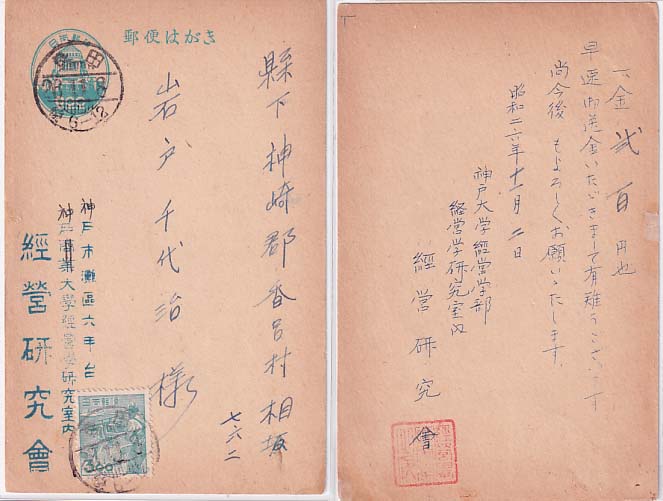 郵便はがき
縣下神崎郡香呂村相坂
七六二
岩戸千代治様
神戸市灘區六甲台
神戸商業大学経営学研究室内
經營研究會
日本郵便
300
一金弐百円也
早速御送金いただきまして有難うございます
尚今後もよろしくお願いいたします。
昭和二六年十一月二日
神戸大学経営学部
経営学研究室内
經营研究會